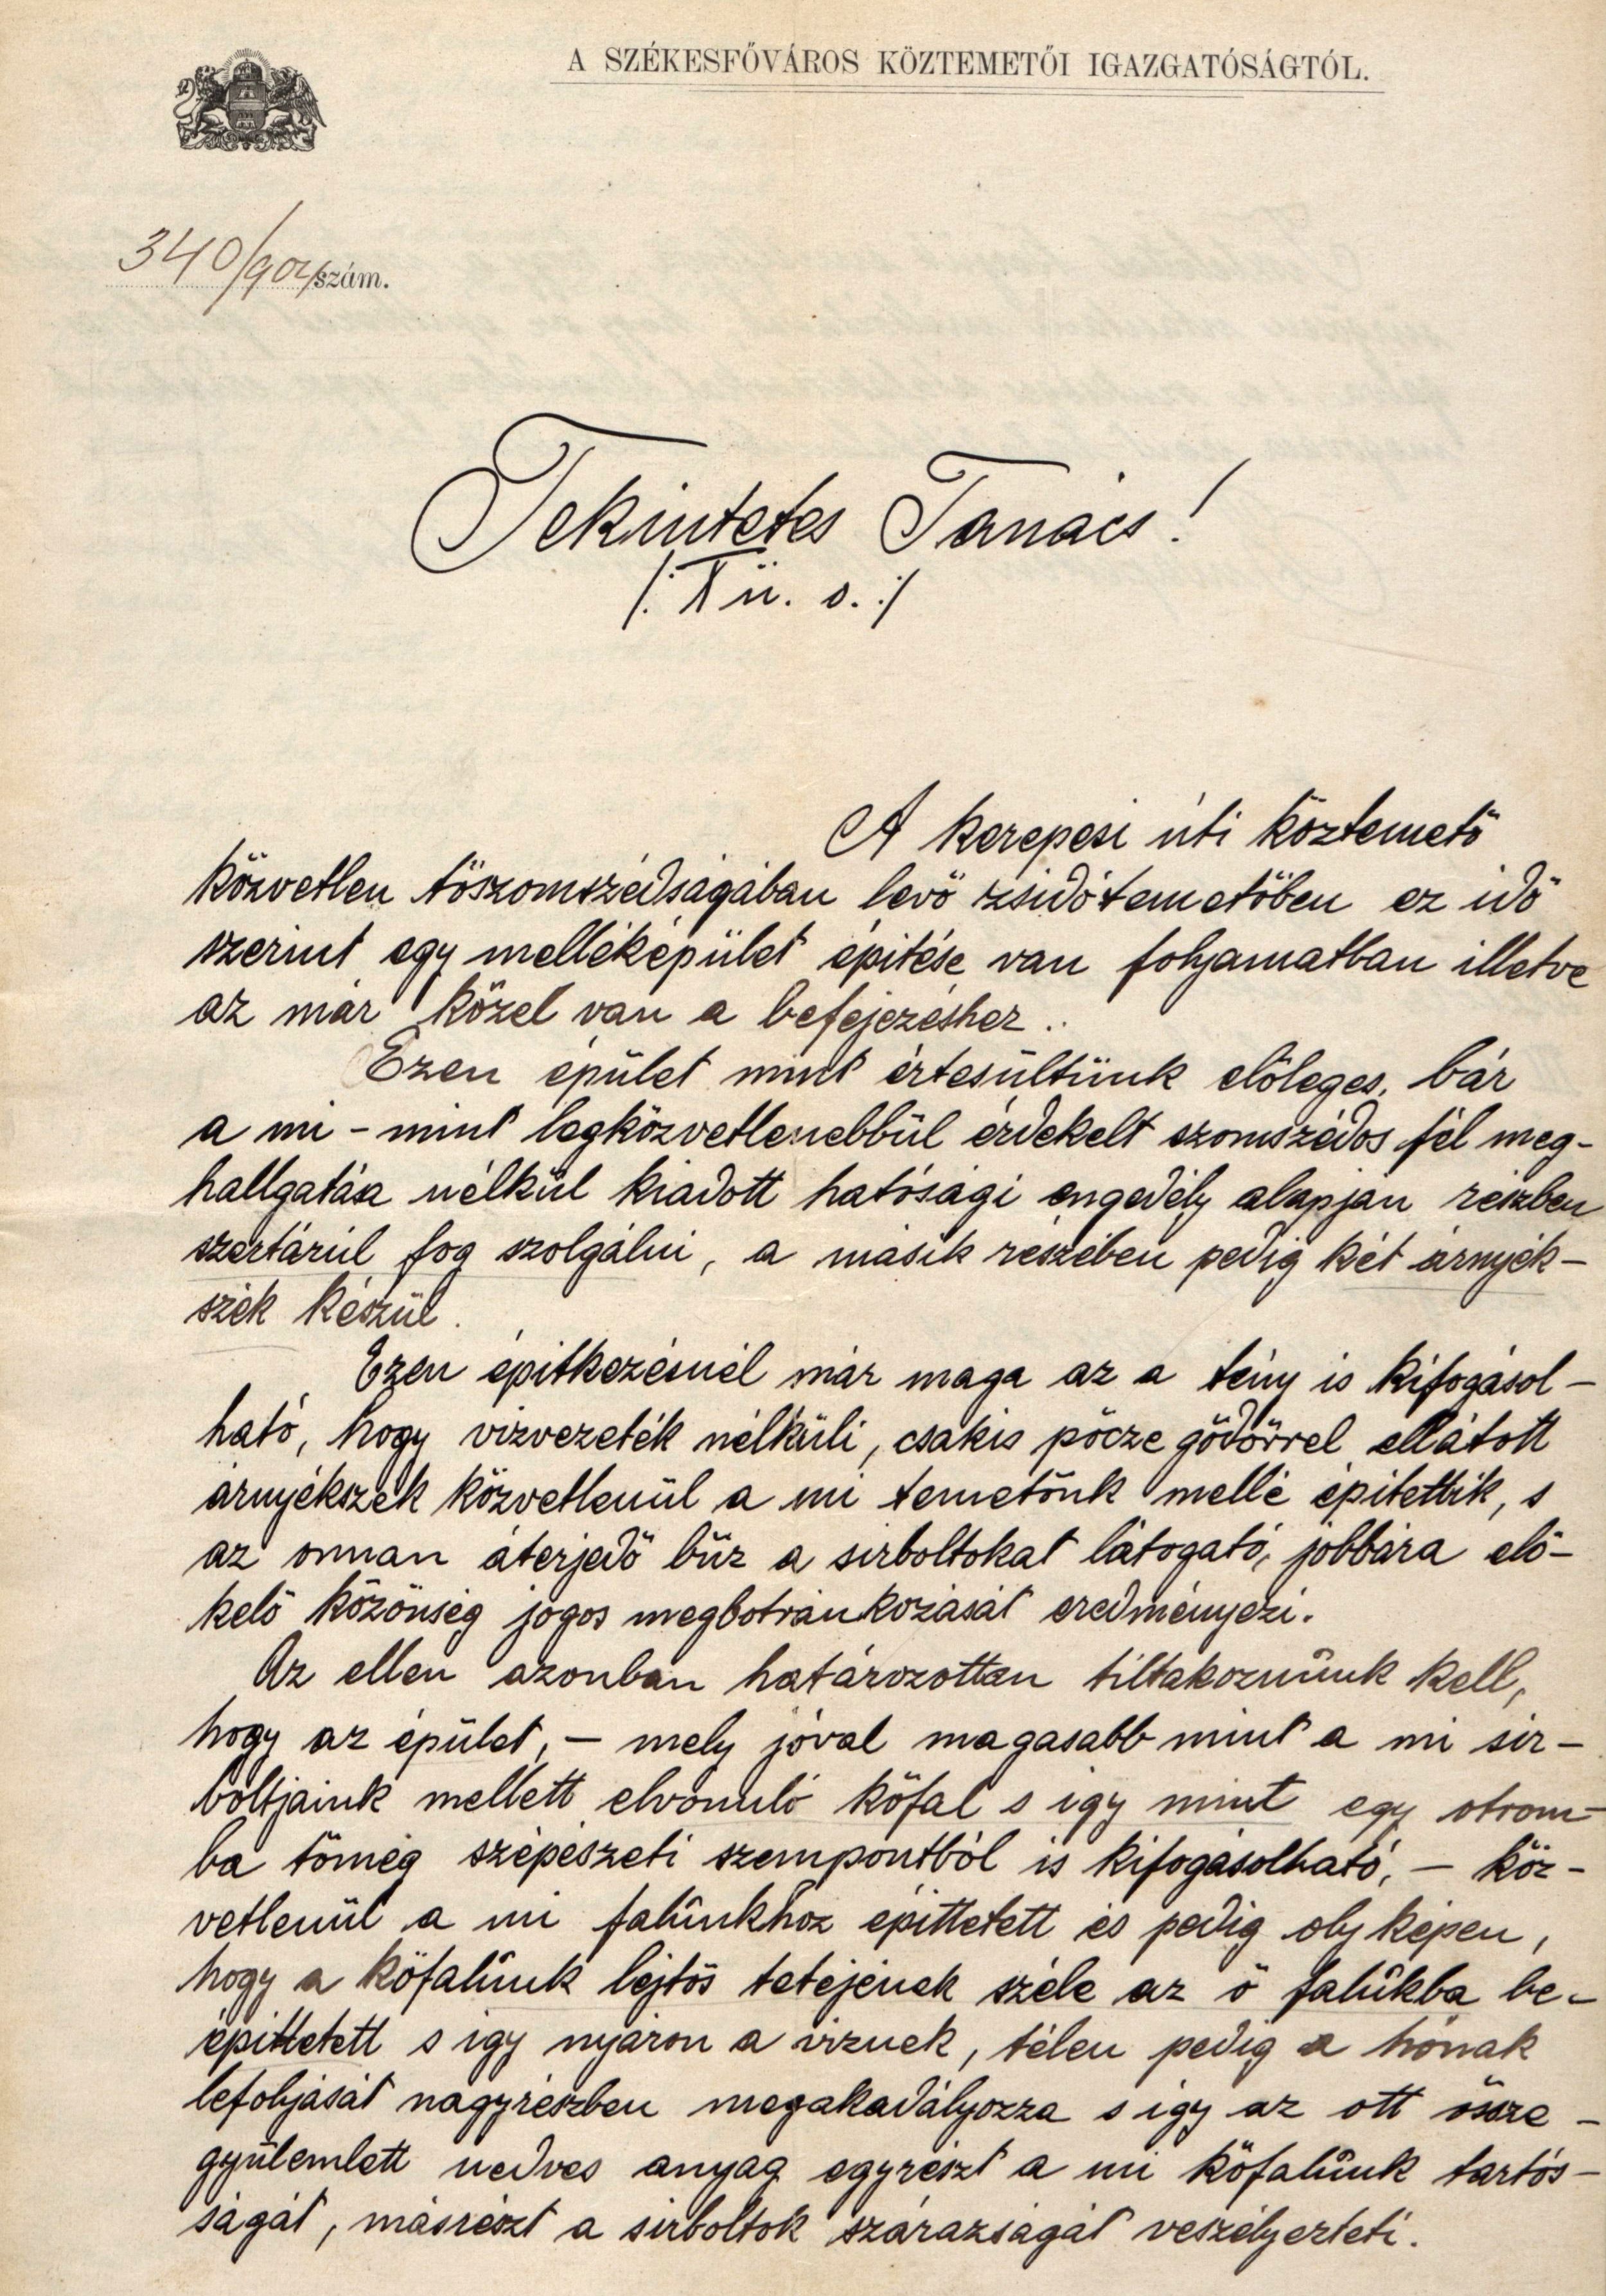 A SZÉKESFŐVÁROS KÖZTEMETŐI IGAZGATÓSÁGTÓL.
340/904 szám.
Tekintetes Tanács!
/: X ü. o. :/
A kerepesi úti köztemető
közvetlen tőszomszédságában levő zsidó temetőben ez idő
szerint egy melléképület épitése van folyamatban illetve
az már közel van a befejezéshez.
Ezen épület mint értesültünk előleges, bár
a mi - mint legközvetlenebbül érdekelt szomszédos fél meg-
hallgatása nélkül kiadott hatósági engedély alapján részben
szertárúl fog szolgálni, a másik részében pedig két árnyék-
szék készül.
Ezen épitkezésnél már maga az a tény is kifogásol-
ható, hogy vizvezeték nélküli, csakis pöcze gödörrel ellátott
árnyékszék közvetlenül a mi temetőnk mellé épitettik, s
az onnan áterjedő bűz a sirboltokat látogató, jobbára elő-
kelő közönség jogos megbotránkozását eredményezi.
Az ellen azonban határozottan tiltakoznunk kell,
hogy az épület, - mely jóval magasabb mint a mi sir-
boltjaink mellett elvonuló kőfal s igy mint egy otrom-
ba tömeg szépészeti szempontból is kifogásolható, - köz-
vetlenül a mi falunkhoz épittetett és pedig oly képen,
hogy a kőfalunk lejtős tetejének széle az ő falukba be-
épittetett s igy nyáron a viznek, télen pedig a hónak
lefolyását nagyrészben megakadályozza s igy az ott össze-
gyülemlett nedves anyag egyrészt a mi kőfalunk tartós-
ságát, másrészt a sirboltok szárazságát veszélyezteti.